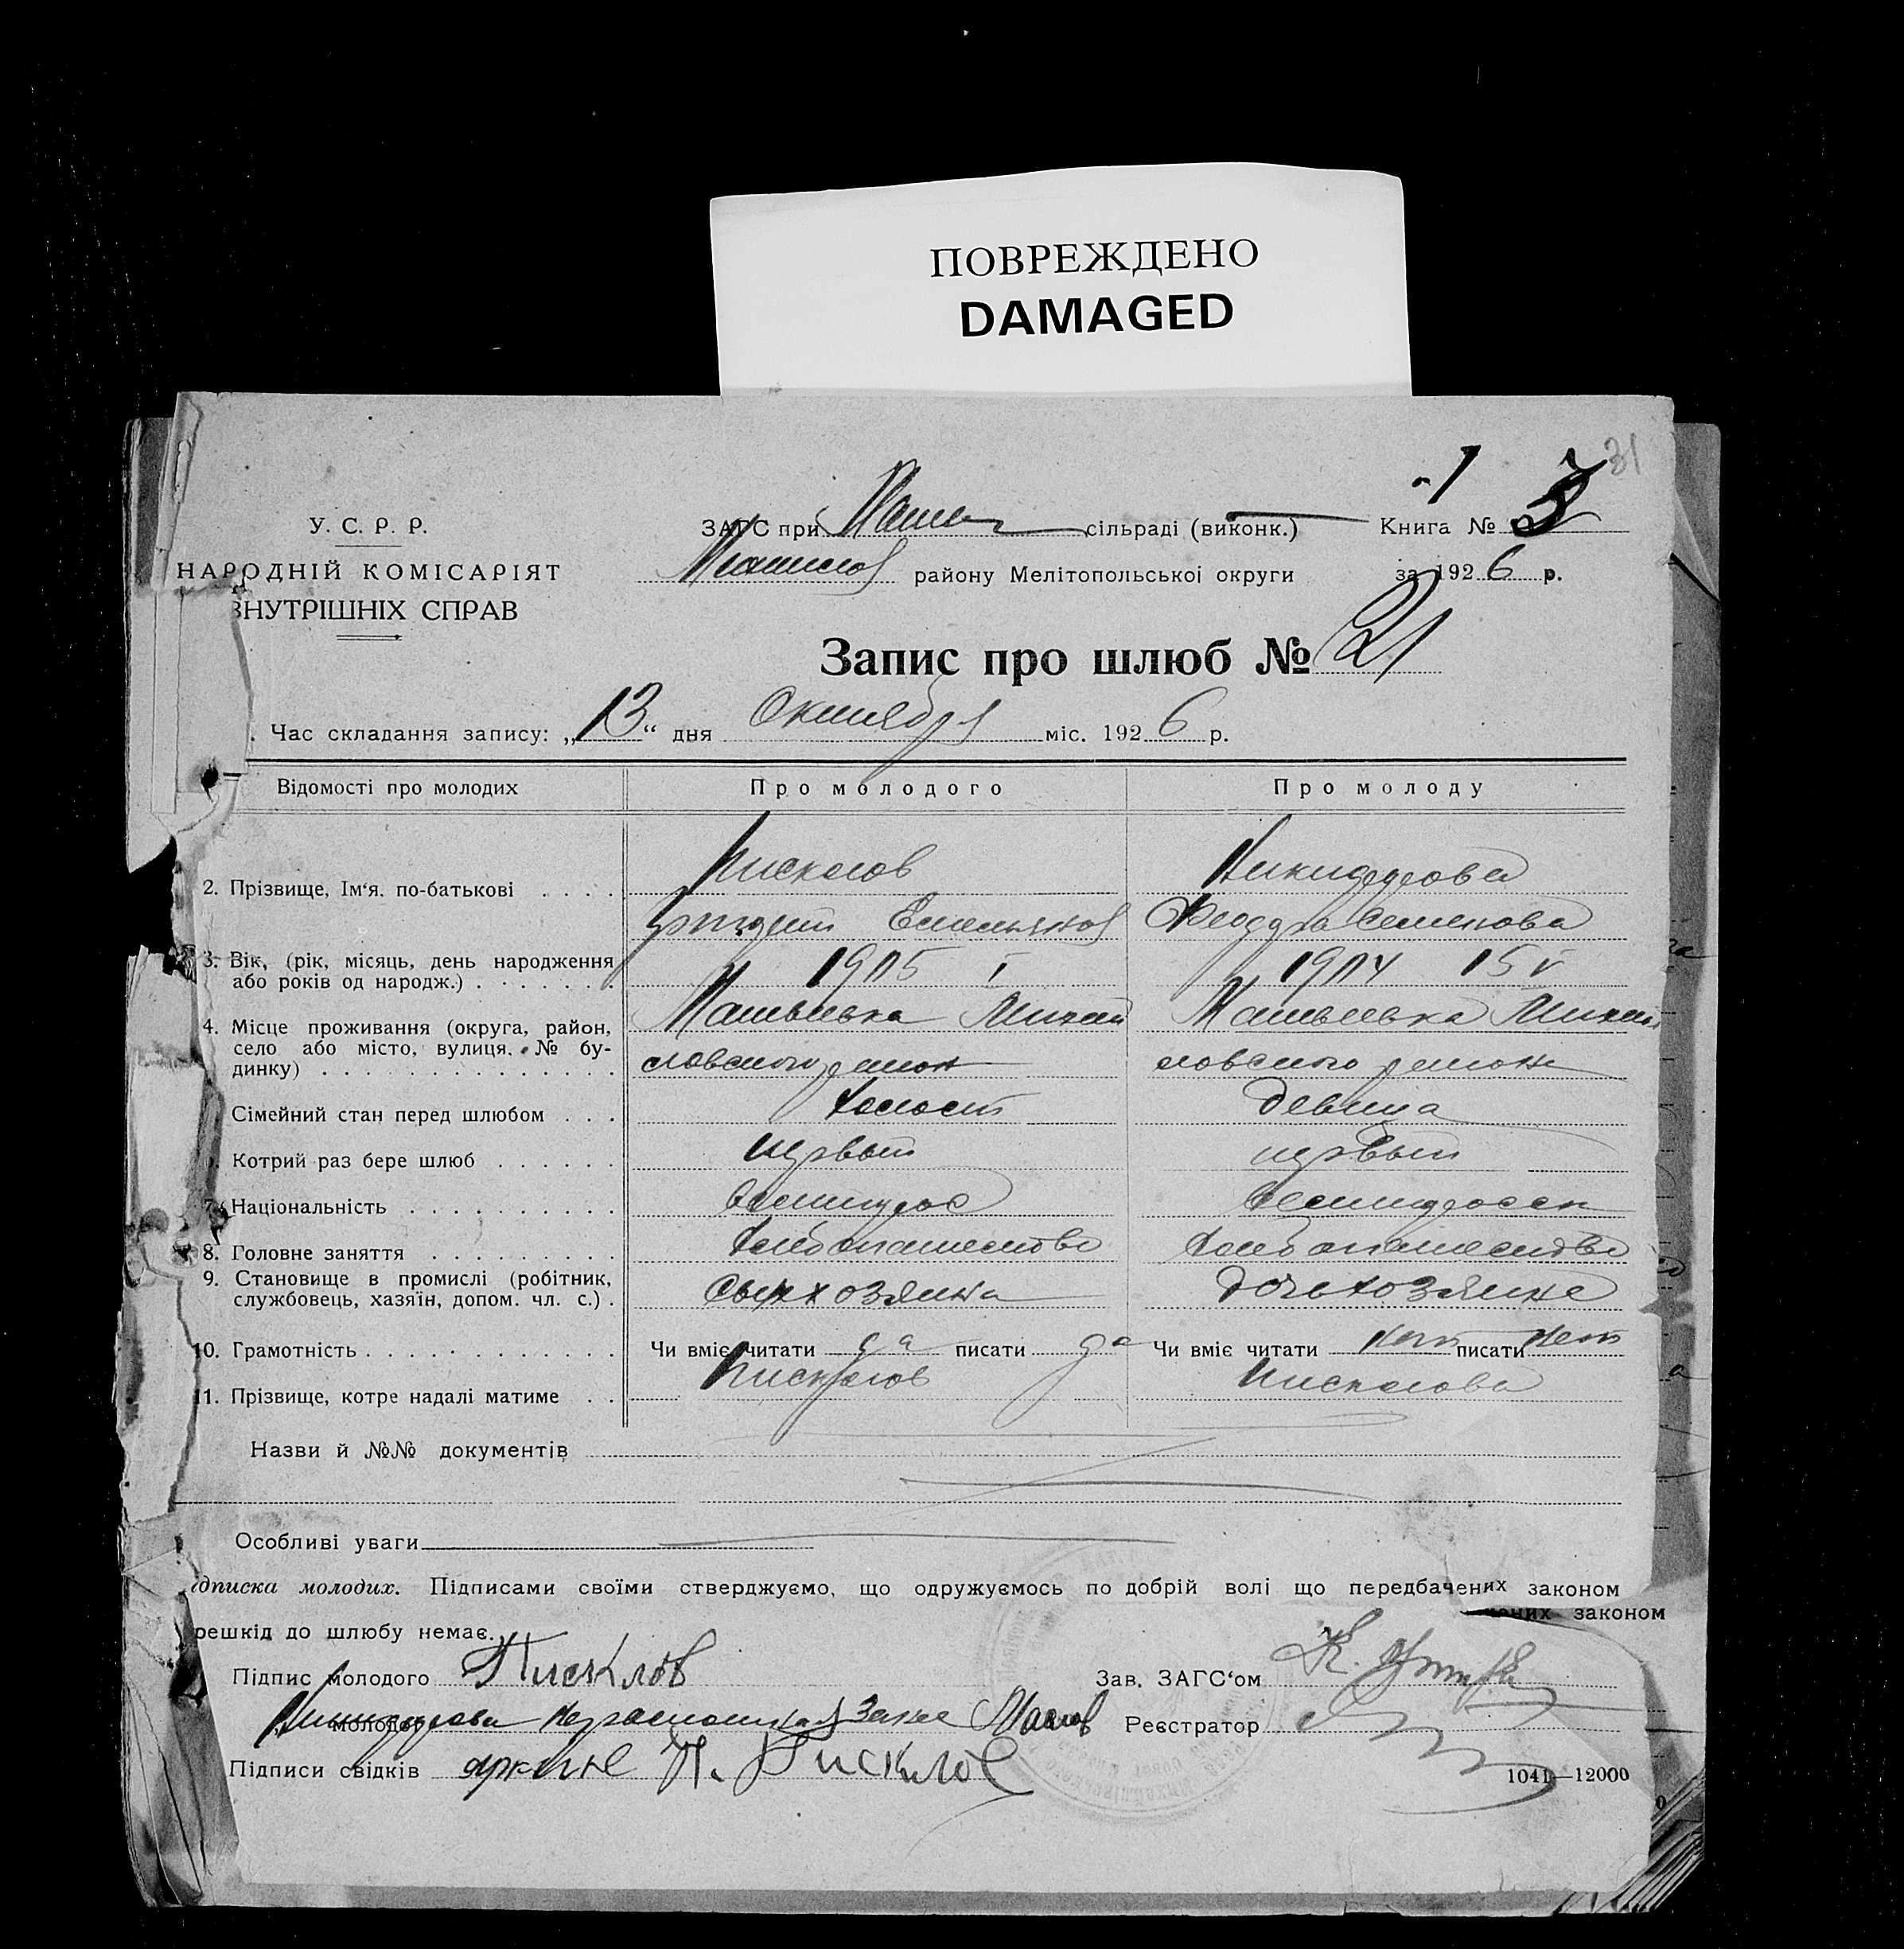 ПОВРЕЖДЕНО
DAMAGED
31
1 3
У. С. Р. Р.
ЗАГС при сільраді (виконк.) Книга №
НАРОДНІЙ КОМІСАРІЯТ
району Мелітопольської округи за 1926 р.
ВНУТРІШНІХ СПРАВ
Запис про шлюб № 21
Час складання запису: „13“ дня Октября міс. 1926 р.
Відомості про молодих Про молодого Про молоду
2. Прізвище, Ім‘я. по-батькові . . . . Писклов
Емельянов Семенова
3. Вік, (рік, місяць, день народження
або років од народж.) . . . . . . 1905 I 1904 15 V
4. Місце проживання (округа, район, Матвеевка Михай Матвеевка Михай
село або місто, вулиця. № бу-
динку) . . . . . . . . . . . . . . ловского район ловского район
Сімейний стан перед шлюбом . . . холост девица
Котрий раз бере шлюб . . . . . . первый первый
7. Національність . . . . . . . . . .
8. Головне заняття . . . . . . . . . хлебопашество хлебопашество
9. Становище в промислі (робітник,
службовець, хазяїн, допом. чл. с.) . сын хозяина дочь хозяина
10. Грамотність . . . . . . . . . . . . Чи вміє читати да писати да Чи вміє читати нет писати нет
11. Прізвище, котре надалі матиме . . Писклов Писклова
Назви й №№ документів
Особливі уваги
ідписка молодих. Підписами своїми стверджуємо, що одружуємось по добрій волі що передбачених законом
чених законом
решкід до шлюбу немає.
Підпис молодого Писклов Зав. ЗАГС‘ом К.
молодої неграмотная за нее Реєстратор
Підписи свідків П. Писклов
1041—12000